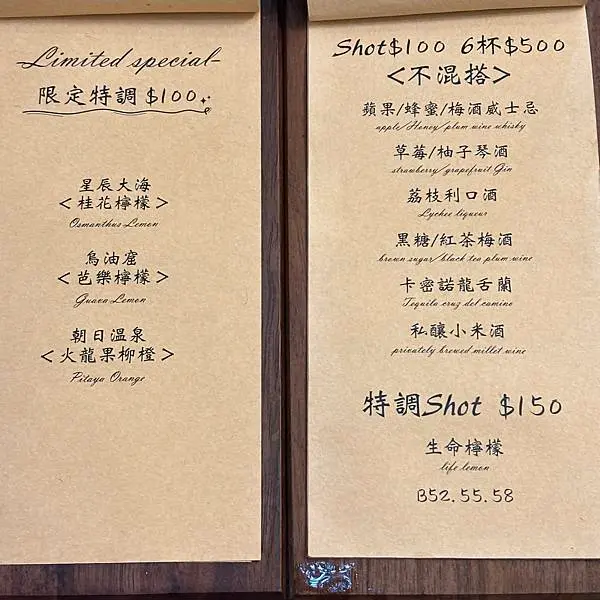 Limited special-
限定特調 $100
星辰大海
<桂花檸檬>
Osmanthus Lemon
烏油窟
<芭樂檸檬>
Guava Lemon
朝日溫泉
<火龍果柳橙>
Pitaya Orange
Shot$100 6杯$500
<不混搭>
蘋果/蜂蜜/梅酒威士忌
apple/Honey/plum wine whisky
草莓/柚子琴酒
strawberry/grapefruit Gin
荔枝利口酒
Lychee liqueur
黑糖/紅茶梅酒
brown sugar/black tea plum wine
卡密諾龍舌蘭
Tequila cruz del camino
私釀小米酒
privately brewed millet wine
特調Shot $150
生命檸檬
life lemon
B52.55.58